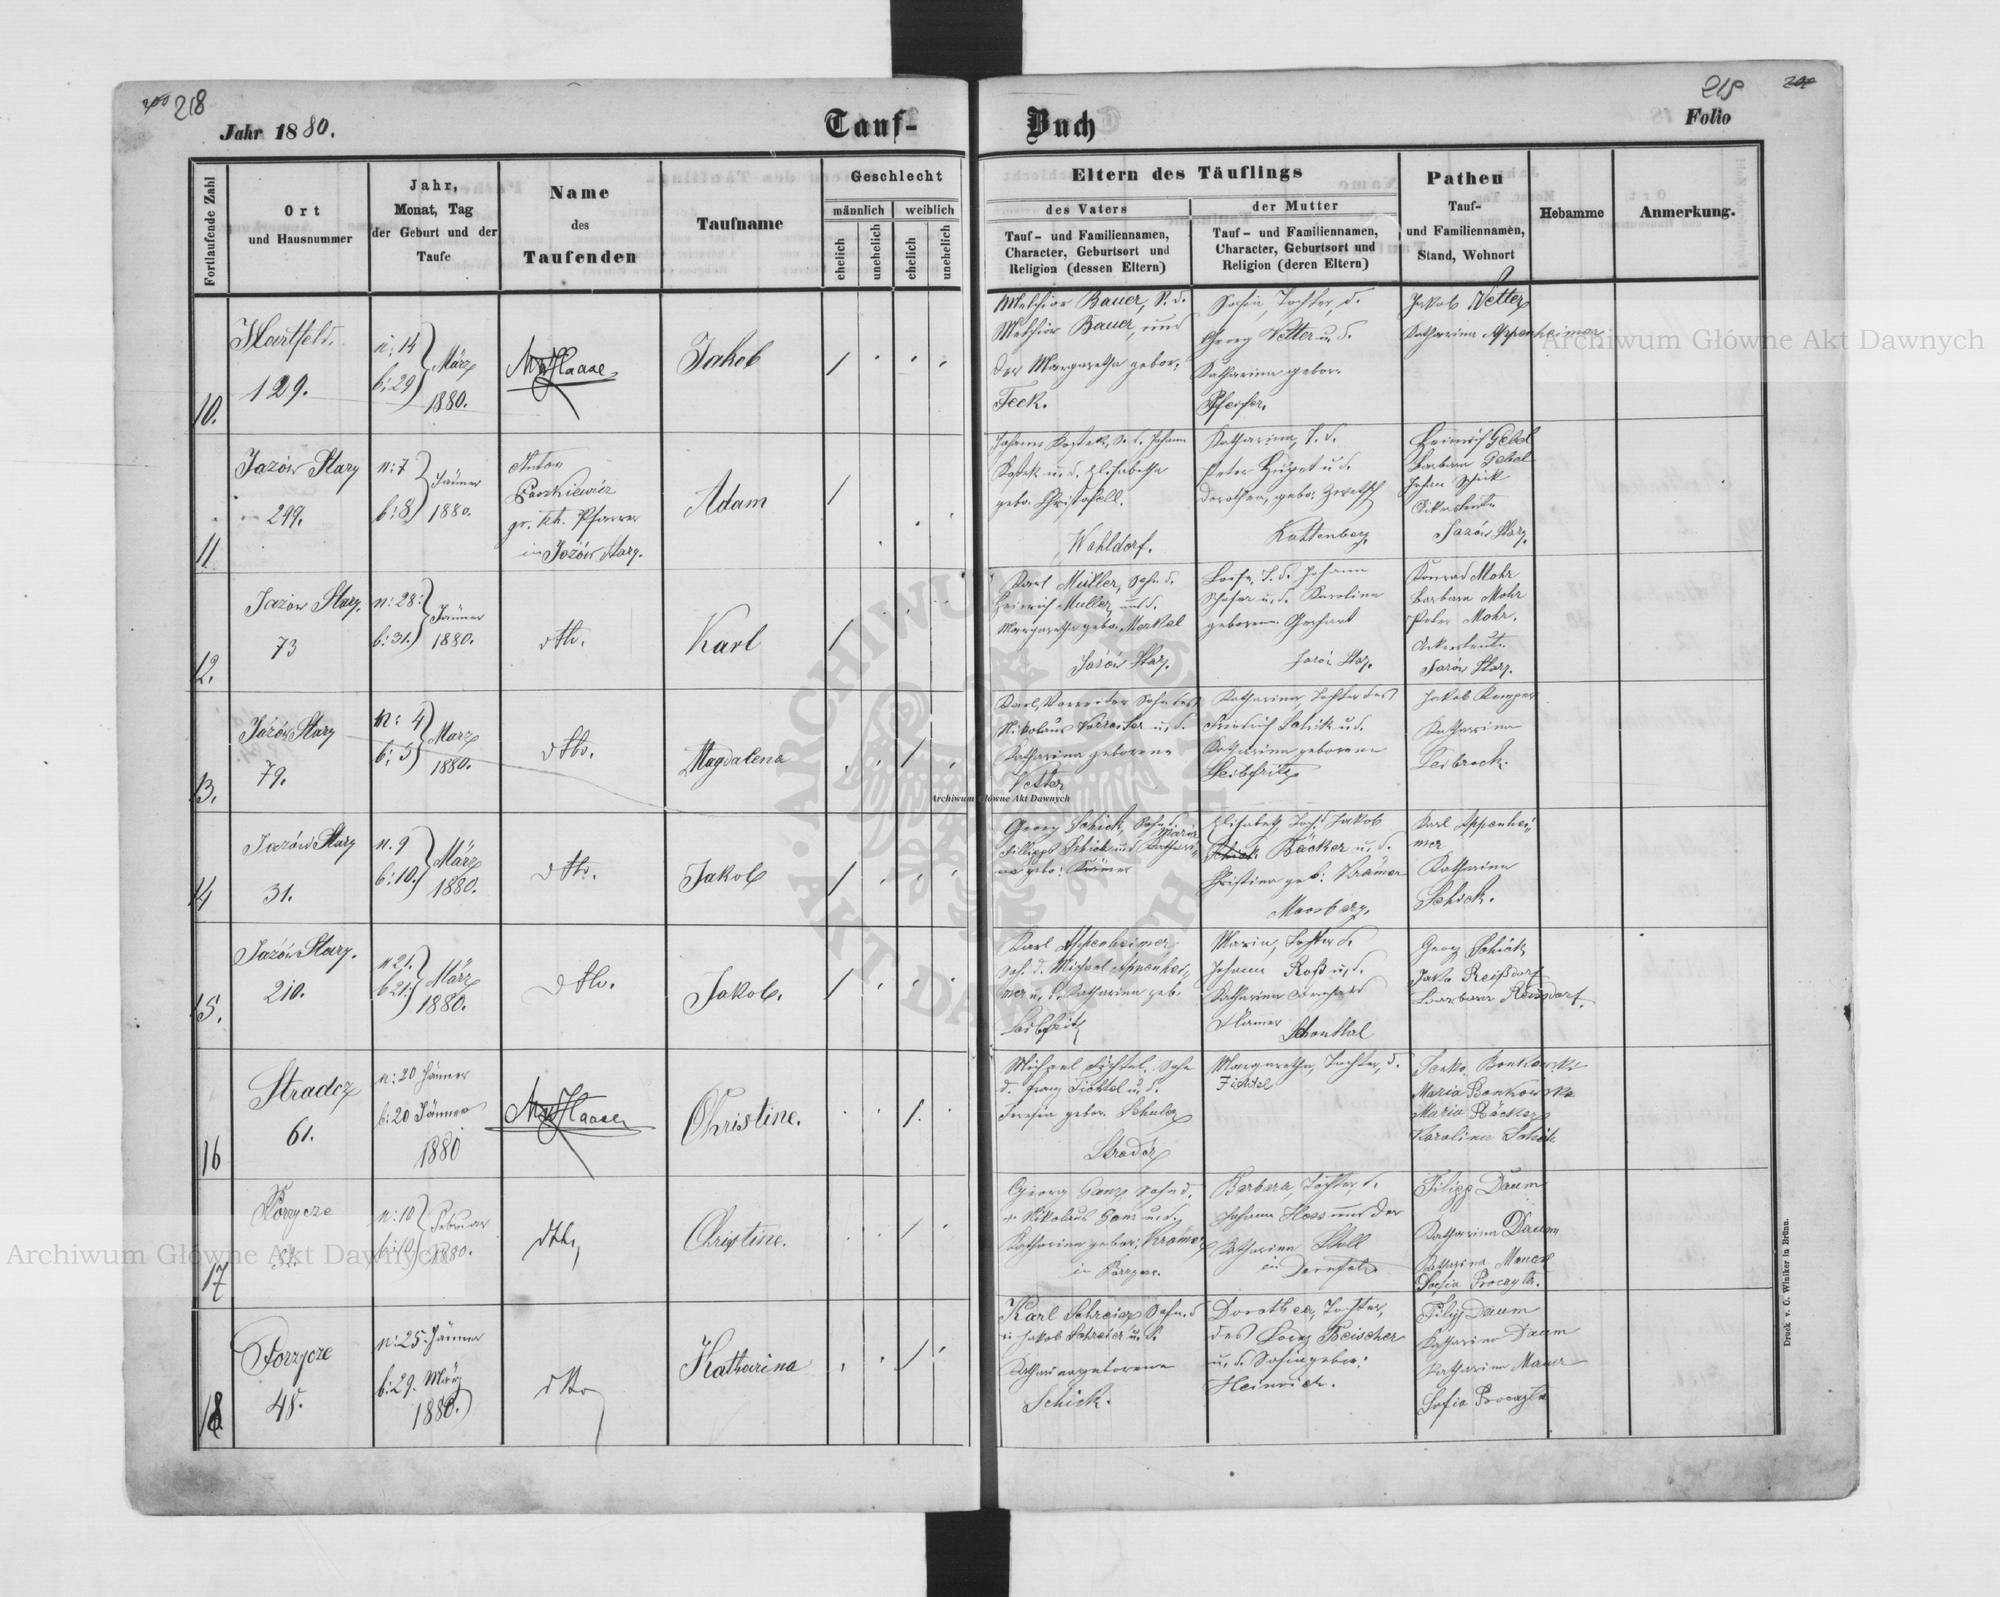 218
Jahr 1880.
Tauf-
Buch
219
Folio
Fortlaufende Zahl
Ort
und Hausnummer
Jahr,
Monat, Tag
der Geburt und der
Taufe
Name
des
Taufenden
Taufname
Geschlecht
männlich
weiblich
ehelich
unehelich
ehelich
unehelich
Eltern des Täuflings
des Vaters
Tauf- und Familiennamen,
Character, Geburtsort und
Religion (dessen Eltern)
der Mutter
Tauf- und Familiennamen,
Character, Geburtsort und
Religion (deren Eltern)
Pathen
Tauf-
und Familiennamen,
Stand, Wohnort
Hebamme
Anmerkung.
10.
Hartfeld.
129.
n: 14
b: 29
März
1880.
Haase
Jakob
Melchior Bauer, S. d.
Melchior Bauer, und
der Margaretha gebor:
Teck.
Sofia, Tochter, d.
Georg Vetter u. d.
Katharina gebor:
Pfeifer.
Jakob Vetter
Katharina Appenheimer
11
Jazów Stary
249.
n: 7
b: 8
Jänner
1880.
Anton
gr. kth. Pfarrer
in Jazów Stary.
Adam
Johann S. d. Johann
u. d. Elisabetha
gebo. Christofell.
Wahldorf.
Katharina, T. d.
Peter u. d.
Dorothea, gebo:
Rottenberg.
Heinrich Gebel
Barbara Gebel
Johan Schick
Jazów Stary.
12.
Jazów Stary.
73
n: 28:
b: 31.
Jänner
1880.
dtto.
Karl
Karl Müller, Sohn d.
Heinrich Muller, und d.
Margaretha gebo: Merkel
Jazów Stary.
T. d. Johann
Schäfer u. d. Karolina
geborene Gerhart
Jazów Stary.
Konrad Mohr
Barbara Mohr
Peter Mohr.
Ackersleute
Jazów Stary.
13.
Jazów Stary
79.
n: 4
b: 5
Marz
1880.
dtto.
Magdalena
Karl Vorreiter Sohn des
Nikolaus Vorreiter u. d.
Katharina geborene
Vetter
Katharina, Tochter des
Friedrich Schick u. d.
Katharina geborene
Leibfritz
Jakob Kemper
Katharina
Leibrock.
14
Jazów Stary
31.
n. 9
b: 10.
März
1880.
dtto.
Jakob
Georg Schick, Sohn d.
Fillipps Schick und Maria Kathari-
na gebo: Krämer
Elisabeth, Toch. d. Jakob
Bäcker u. d.
Christina geb: Krämer
Moosberg.
Karl Appenhei-
mer
Katharina
Schick.
15.
Jazów Stary.
210.
n 21.
b 21.
März
1880.
dtto.
Jakob.
Karl Appenheimer
Soh. d. Michael Appenhei-
mer u. d. Katharina geb.
Leibfritz
Maria, Tochter d.
Johann Roß u. d.
Katharina
Schonthal
Georg Schick
Jakob Reißdorf
Barbara Reissdorf.
16
Stradcz
61.
n: 20 Jänner
b: 20 Jänner
1880
Haase
Christine.
Michael Fichtel. Sohn
d. Franz Fichtel u. d.
Teresia gebor. Schulz
Stradcz
Margaretha, Tochter, d.
Fichtel
Bonkowski
Maria Bonkowska
Maria Bäcker
Karolina Schick
17
Porzycze
n: 10
Februar
1880.
dtto,
Christine.
Georg Ganz, Sohn d.
Nikolaus Ganz u. d.
Katharina gebor: Krämer
in Porzycze.
Barbara, Tochter, d.
Johann Hess und der
Katharina Stoll
in Dornfeld
Filipp Daum
Katharina Daum
Katharina Mauer
Sofia
18.
Porzycze
45.
n: 25. Jänner
b: 29. März
1880.
dtto
Katharina
Karl Schreier Sohn d.
Jakob Schreier u. d.
Katharina geborene
Schick.
Dorothea, Tochter,
des Georg Beischer
u. d. Sofia gebor:
Heinrich.
Filip Daum
Katharina Daum
Katharina Mauer
Sofia
Druck v. C. Winiker in Brünn.
Archiwum Główne Akt Dawnych
Archiwum Główne Akt Dawnych
Archiwum Główne Akt Dawnych
ARCHIWUM GŁÓWNE
AKT DAWNYCH